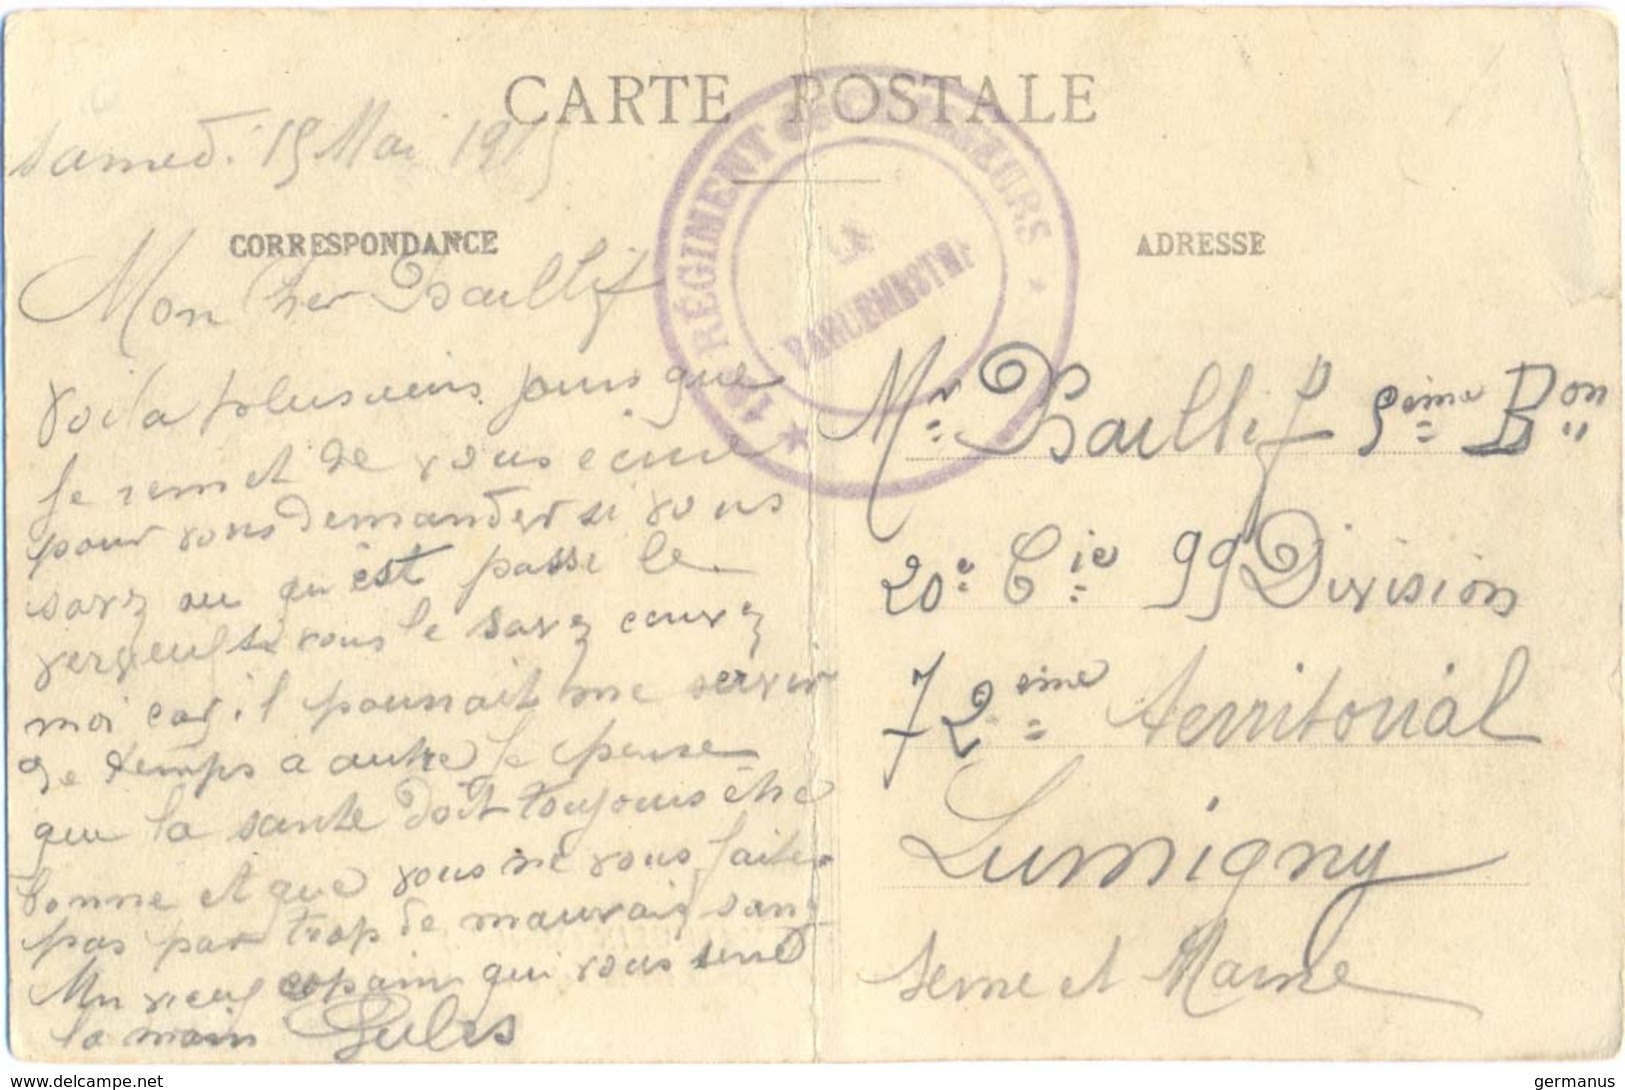 CARTE POSTALE
samedi 15 Mai 1915
CORRESPONDANCE
Mon Cher Baillif
voila plusieurs jours que
je remet de vous ecrire
pour vous demander si vous
savez ou qu'est passé le
si vous le savez
moi car il pourrait me servir
de temps a autre je pense
que la santé doit toujours être
bonne et que vous ne vous faites
pas par trop de mauvais sang
Un vieux copain qui vous serre
la main Jules
RÉGIMENT
LE
VAGUEMESTRE
ADRESSE
Mr Baillif 5eme Bon
20e Cie 99 Division
72eme territorial
Lumigny
Seine et Marne
www.delcampe.net
germanus